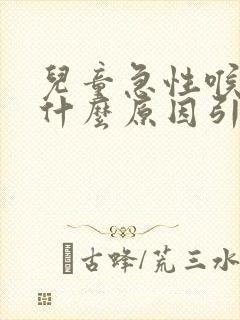 兒童急性喉
什麼原因引
古蜂/荒三水